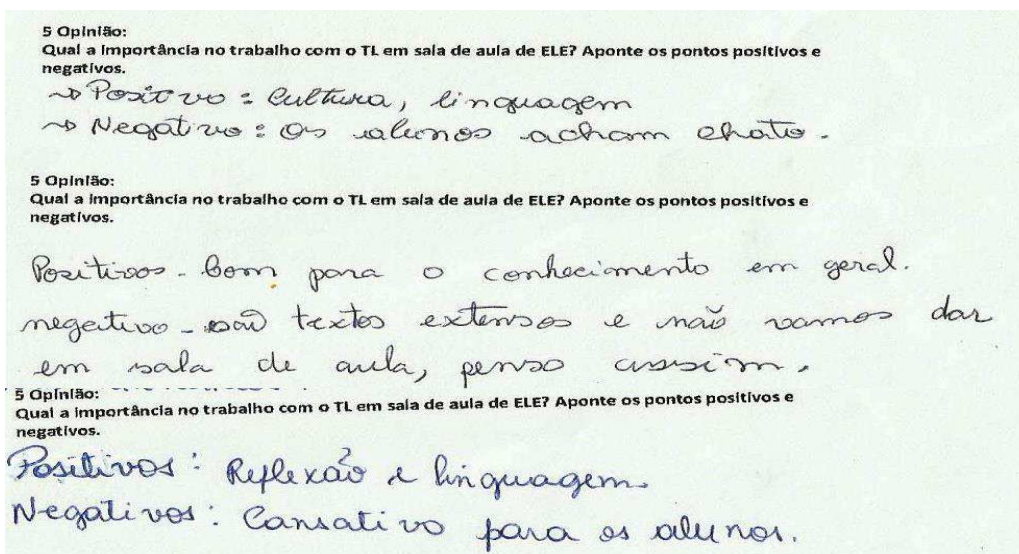 5 Opinião:
Qual a importância no trabalho com o TL em sala de aula de ELE? Aponte os pontos positivos e
negativos.
→ Positivo : Cultura, linguagem
→ Negativo : Os alunos acham chato.
5 Opinião:
Qual a importância no trabalho com o TL em sala de aula de ELE? Aponte os pontos positivos e
negativos.
Positivos - bom para o conhecimento em geral.
negativo - são textos extensos e não vamos dar
em sala de aula, penso assim.
5 Opinião:
Qual a importância no trabalho com o TL em sala de aula de ELE? Aponte os pontos positivos e
negativos.
Positivos : Reflexão e linguagem.
Negativos : Cansativo para os alunos.